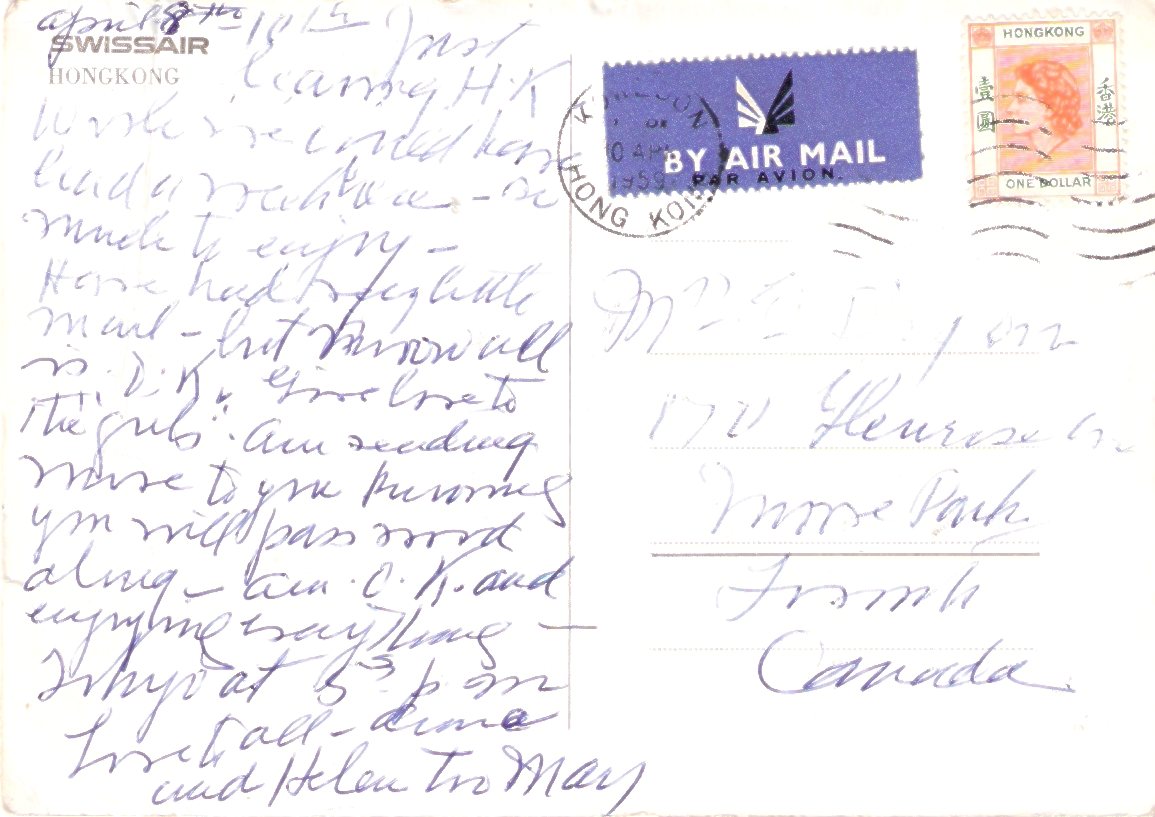 April 8th - 10th Just
SWISSAIR
HONGKONG
leaving H.K
Wish we could have
had a week here - so
much to enjoy -
Have had very little
mail - but know all
is O.K. Give love to
"The girls". Am sending
more to you knowing
you will pass word
along - am O.K. and
enjoying everything -
Tokyo at 5 p.m
Love to all -
and Helen too May
KOWLOON
10 AP
1959
HONG KONG
BY AIR MAIL
PAR AVION.
HONGKONG
壹圓
香港
ONE DOLLAR
Mrs
Glenrose Ave
Moore Park
Toronto
Canada